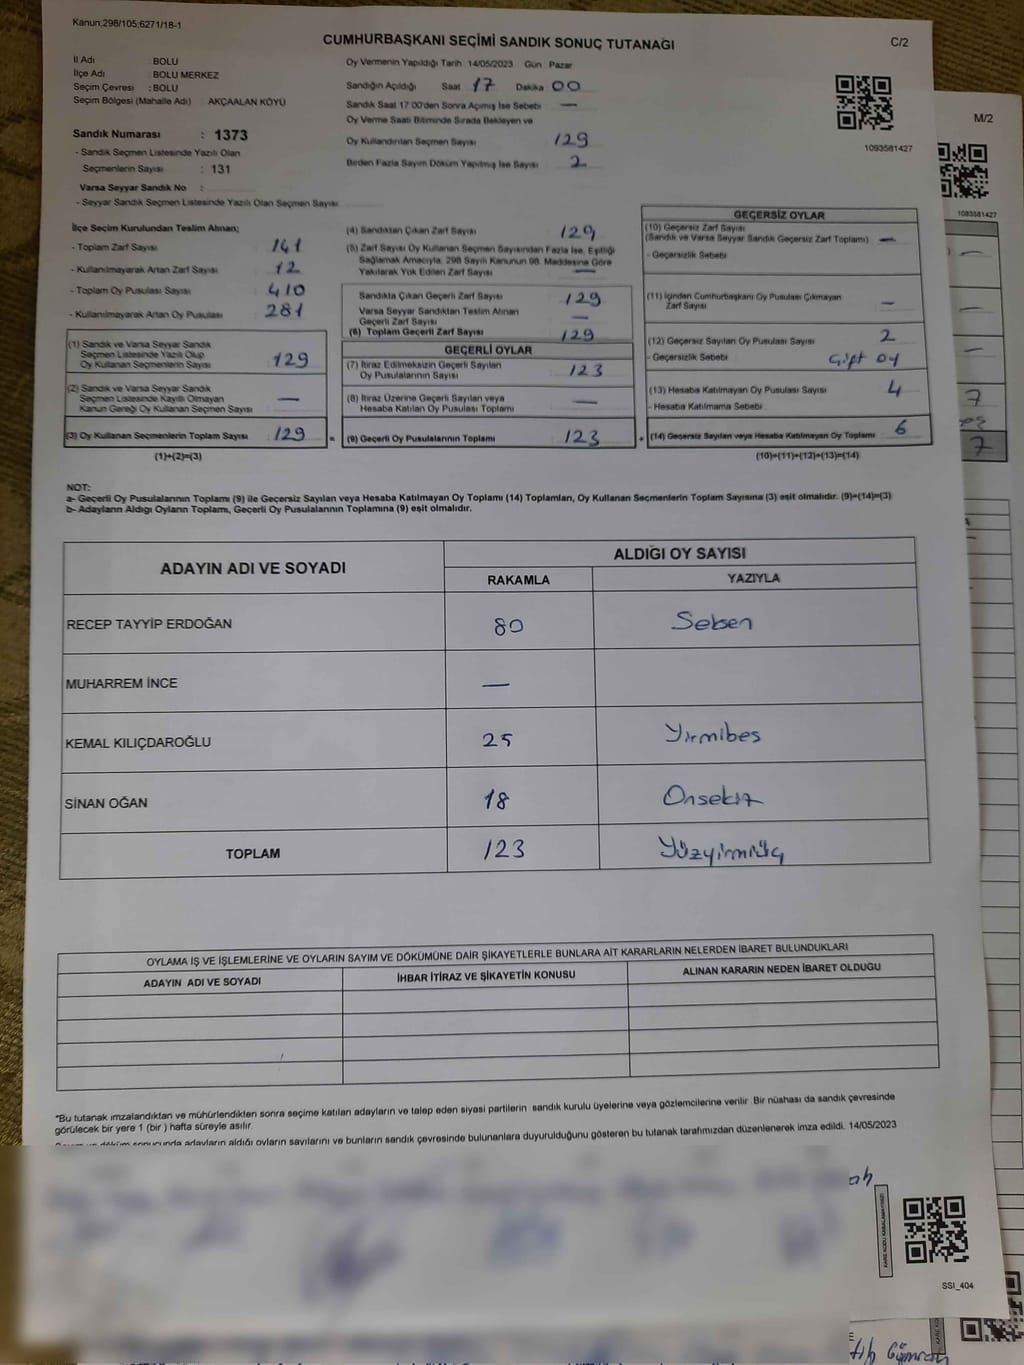 Kanun;298/105;6271/18-1
CUMHURBAŞKANI SEÇİMİ SANDIK SONUÇ TUTANAĞI
C/2
İl Adı : BOLU
İlçe Adı : BOLU MERKEZ
Seçim Çevresi : BOLU
Seçim Bölgesi (Mahalle Adı) AKÇAALAN KÖYÜ
Sandık Numarası : 1373
- Sandık Seçmen Listesinde Yazılı Olan
Seçmenlerin Sayısı : 131
Varsa Seyyar Sandık No :
- Seyyar Sandık Seçmen Listesinde Yazılı Olan Seçmen Sayısı
Oy Vermenin Yapıldığı Tarih 14/05/2023 Gün Pazar
Sandığın Açıldığı Saat 17 Dakika 00
Sandık Saat 17:00'den Sonra Açımış İse Sebebi —
Oy Verme Saati Bitiminde Sırada Bekleyen ve
Oy Kullandırılan Seçmen Sayısı 129
Birden Fazla Sayım Döküm Yapılmış İse Sayısı 2
1093581427
M/2
1083581427
İlçe Seçim Kurulundan Teslim Alınan;
- Toplam Zarf Sayısı 141
- Kullanılmayarak Artan Zarf Sayısı 12
- Toplam Oy Pusulası Sayısı 410
- Kullanılmayarak Artan Oy Pusulası 281
(1) Sandık ve Varsa Seyyar Sandık
Seçmen Listesinde Yazılı Olup
Oy Kullanan Seçmenlerin Sayısı 129
(2) Sandık ve Varsa Seyyar Sandık
Seçmen Listesinde Kayıtlı Olmayan
Kanun Gereği Oy Kullanan Seçmen Sayısı —
(3) Oy Kullanan Seçmenlerin Toplam Sayısı 129 =
(1)+(2)=(3)
(4) Sandıktan Çıkan Zarf Sayısı 129
(5) Zarf Sayısı Oy Kullanan Seçmen Sayısından Fazla İse, Eşitliği
Sağlamak Amacıyla, 298 Sayılı Kanunun 98. Maddesine Göre
Yakılarak Yok Edilen Zarf Sayısı —
Sandıkta Çıkan Geçerli Zarf Sayısı 129
Varsa Seyyar Sandıktan Teslim Alınan
Geçerli Zarf Sayısı —
(6) Toplam Geçerli Zarf Sayısı 129
GEÇERLİ OYLAR
(7) İtiraz Edilmeksizin Geçerli Sayılan
Oy Pusulalarının Sayısı 123
(8) İtiraz Üzerine Geçerli Sayılan veya
Hesaba Katılan Oy Pusulası Toplamı —
(9) Geçerli Oy Pusulalarının Toplamı 123 +
GEÇERSİZ OYLAR
(10) Geçersiz Zarf Sayısı
(Sandık ve Varsa Seyyar Sandık Geçersiz Zarf Toplamı) —
- Geçersizlik Sebebi
(11) İçinden Cumhurbaşkanı Oy Pusulası Çıkmayan
Zarf Sayısı —
(12) Geçersiz Sayılan Oy Pusulası Sayısı 2
- Geçersizlik Sebebi Çift oy
(13) Hesaba Katılmayan Oy Pusulası Sayısı 4
- Hesaba Katılmama Sebebi
(14) Geçersiz Sayılan veya Hesaba Katılmayan Oy Toplamı 6
(10)+(11)+(12)+(13)=(14)
7
7
NOT:
a- Geçerli Oy Pusulalarının Toplamı (9) ile Geçersiz Sayılan veya Hesaba Katılmayan Oy Toplamı (14) Toplamları, Oy Kullanan Seçmenlerin Toplam Sayısına (3) eşit olmalıdır. (9)+(14)=(3)
b- Adayların Aldığı Oyların Toplamı, Geçerli Oy Pusulalarının Toplamına (9) eşit olmalıdır.
ADAYIN ADI VE SOYADI
ALDIĞI OY SAYISI
RAKAMLA YAZIYLA
RECEP TAYYİP ERDOĞAN 80 Seksen
MUHARREM İNCE —
KEMAL KILIÇDAROĞLU 25 Yirmibeş
SİNAN OĞAN 18 Onsekiz
TOPLAM 123 Yüzyirmiüç
OYLAMA İŞ VE İŞLEMLERİNE VE OYLARIN SAYIM VE DÖKÜMÜNE DAİR ŞİKAYETLERLE BUNLARA AİT KARARLARIN NELERDEN İBARET BULUNDUKLARI
ADAYIN ADI VE SOYADI İHBAR İTİRAZ VE ŞİKAYETİN KONUSU ALINAN KARARIN NEDEN İBARET OLDUĞU
*Bu tutanak imzalandıktan ve mühürlendikten sonra seçime katılan adayların ve talep eden siyasi partilerin sandık kurulu üyelerine veya gözlemcilerine verilir .Bir nüshası da sandık çevresinde
görülecek bir yere 1 (bir ) hafta süreyle asılır.
sonucunda adayların aldığı oyların sayılarını ve bunların sandık çevresinde bulunanlara duyurulduğunu gösteren bu tutanak tarafımızdan düzenlenerek imza edildi. 14/05/2023
KARE KODU KARALAMAYINIZ!
SSI_404